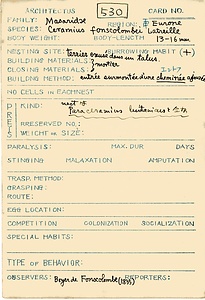 ARCHITECTUS 530 CARD NO.
FAMILY: Masaridae REGION: Europe
SPECIES: Ceramius fonscolombei Latreille
BODY WEIGHT: BODY-LENGTH 13-16 mm
NESTING SITE: terrier creusé dans un talus. BURROWING HABIT (+)
BUILDING MATERIALS:
CLOSING MATERIALS: mortier
BUILDING METHOD: entrée surmontée d'une cheminée
NO CELLS IN EACH NEST
KIND: nest of
Paraceramius lusitanicus
PRESERVED NO.:
WEIGHT OR SIZE:
PARALYSIS: MAX. DUR DAYS
STINGING MALAXATION AMPUTATION
TRASP. METHOD:
GRASPING:
ROUTE:
EGG LOCATION:
COMPETITION COLONIZATION SOCIALIZATION
SPECIAL HABITS:
TYPE OF BEHAVIOR:
OBSERVERS: Boyer de Fonscolombe (1835) REPORTERS: